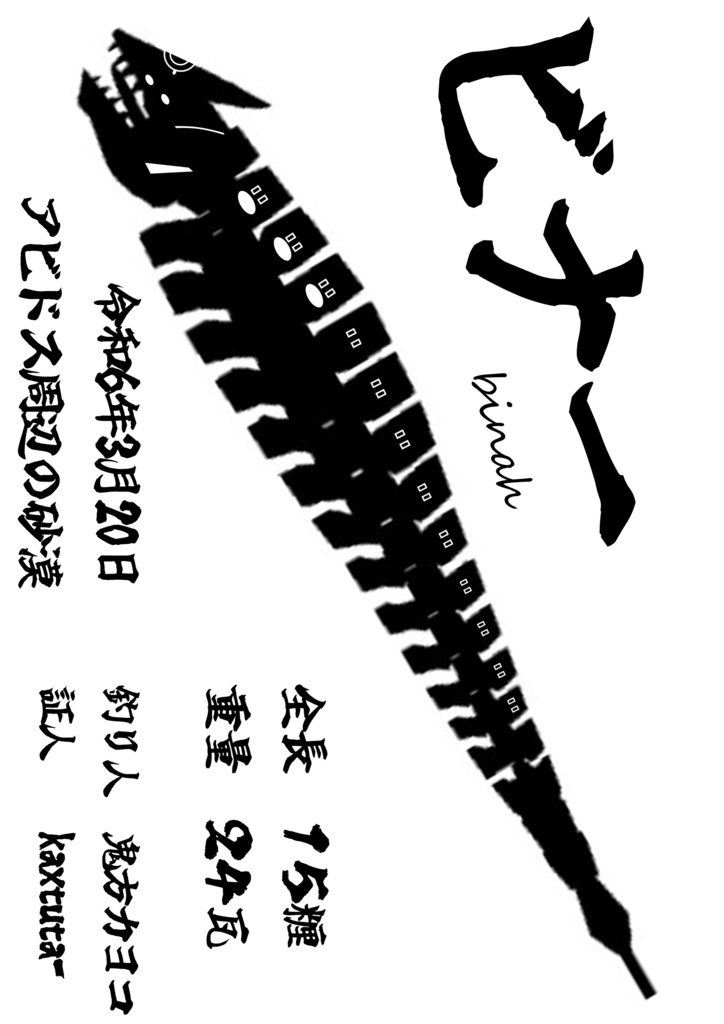 ビナー
binah
全長 15糎
重量 24瓦
令和6年3月20日
アビドス周辺の砂漠
釣り人 鬼方カヨコ
証人 kaxtutar